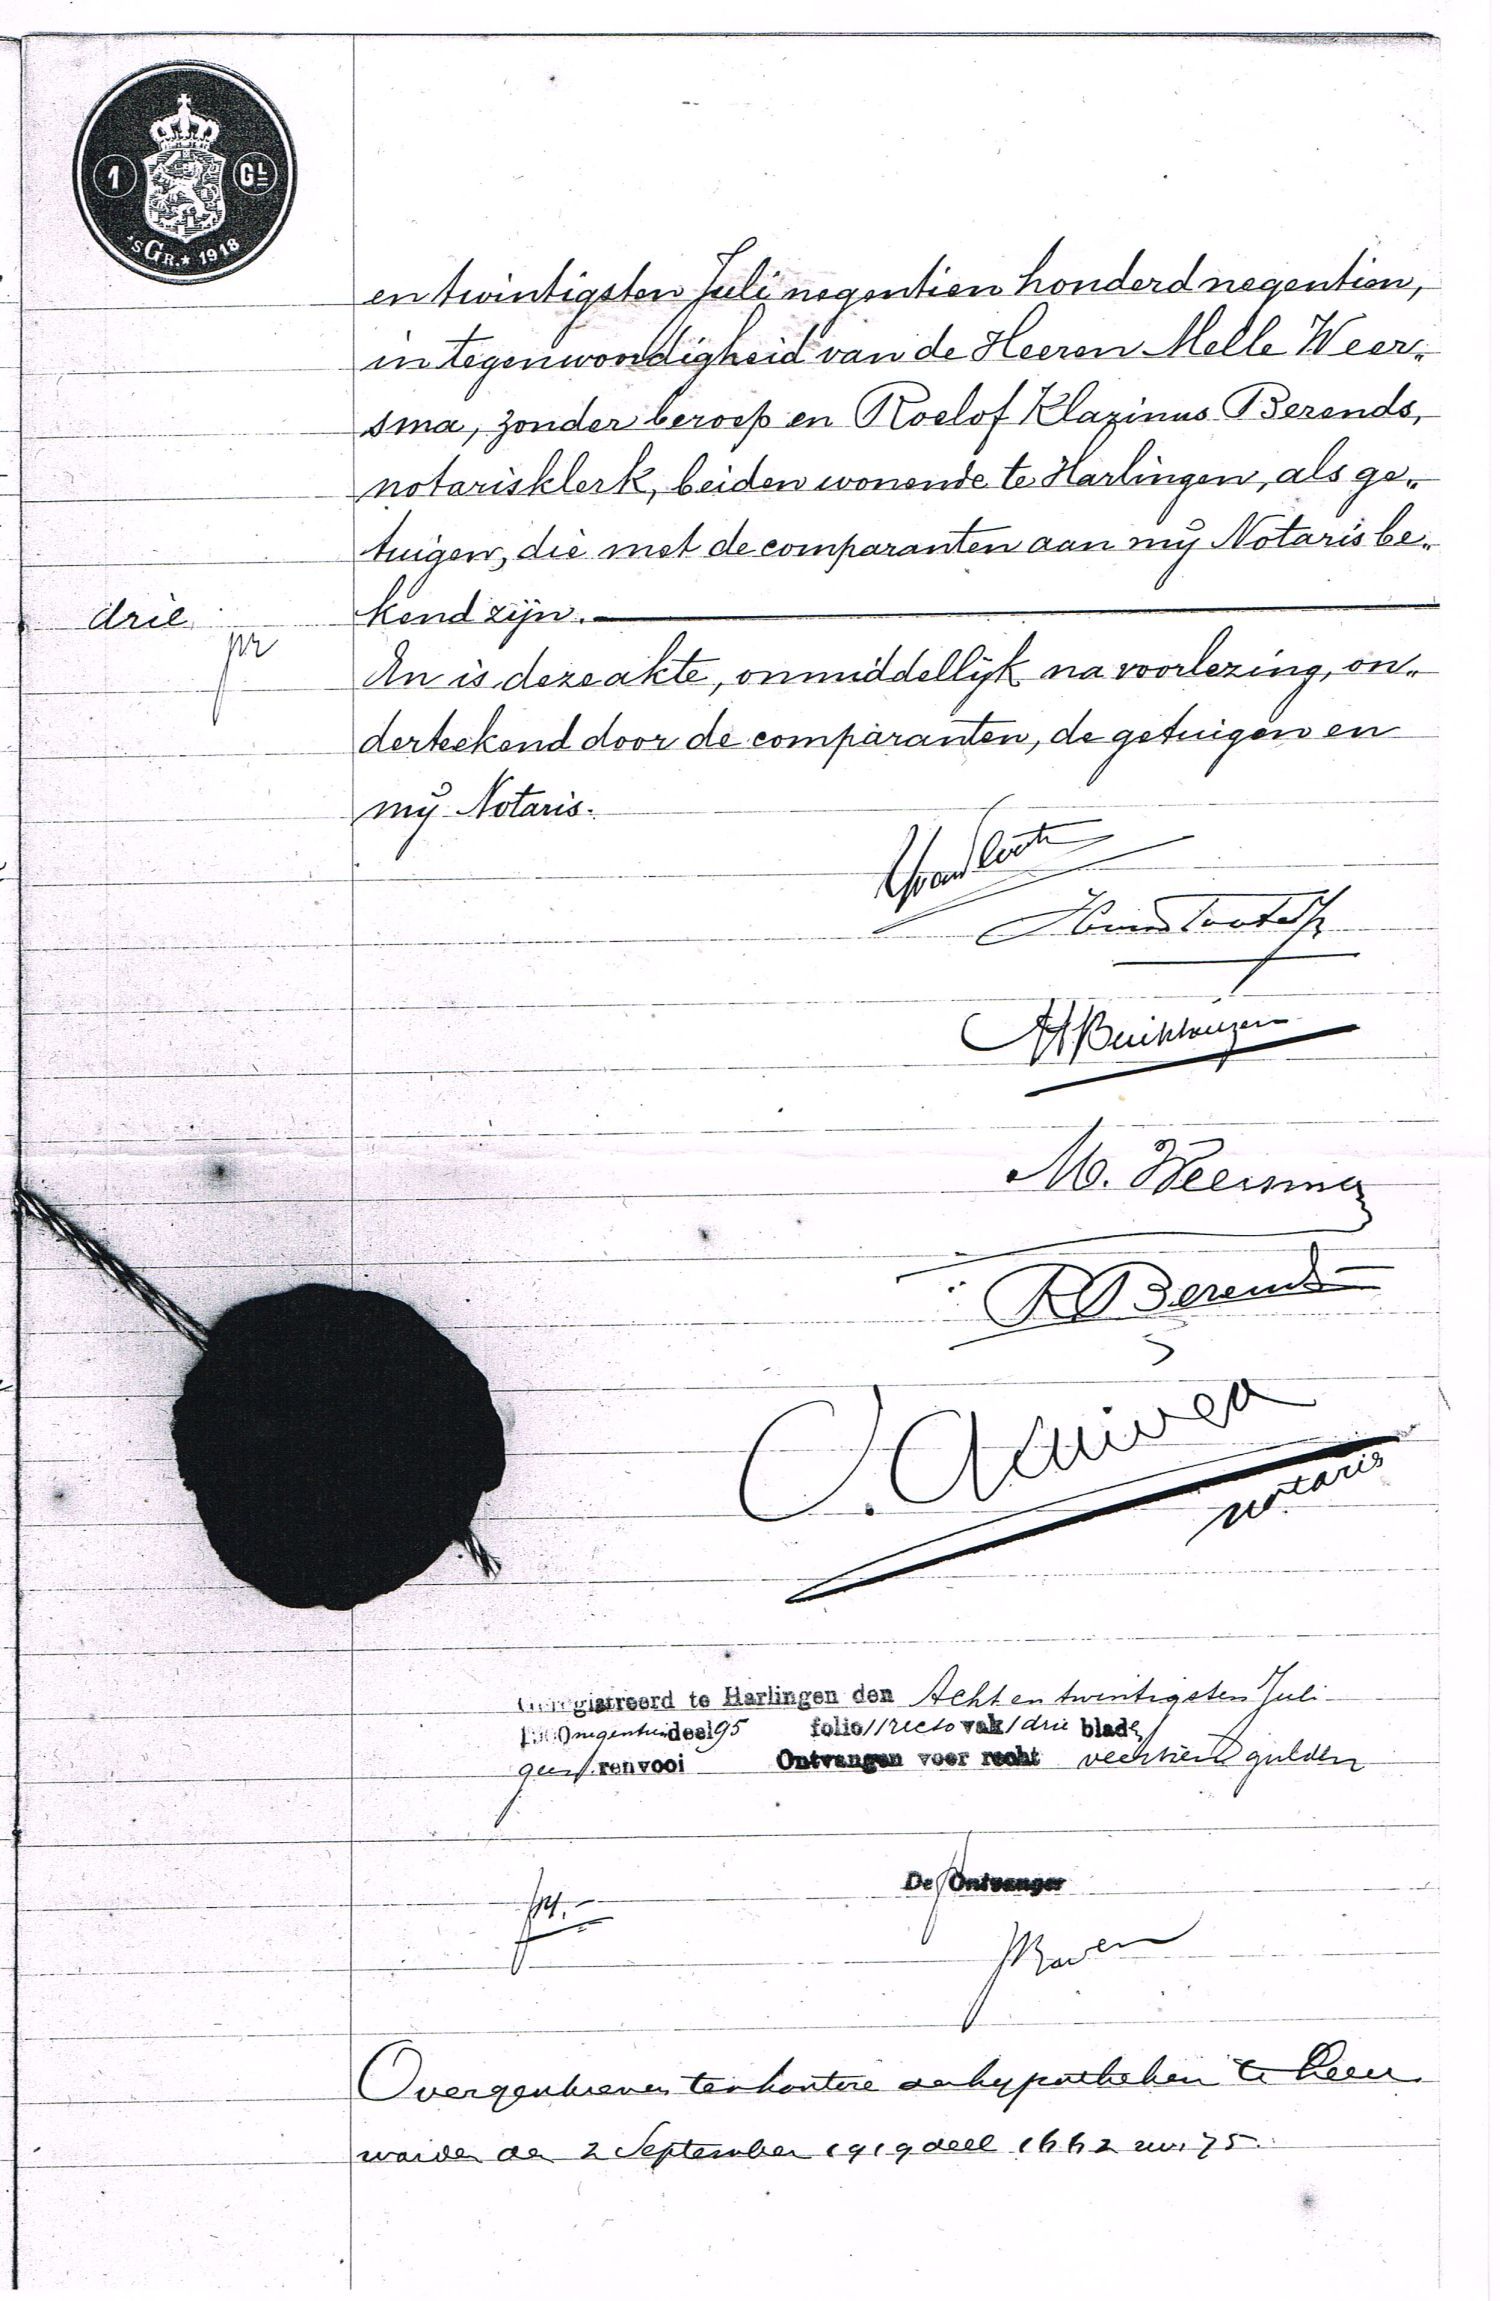 1 GL
'SGR.★ 1918
en twintigsten Juli negentien honderd negentien,
in tegenwoordigheid van de Heeren Melle Weer„
sma, zonder beroep en Roelof Klazinus Berends,
notarisklerk, beiden wonende te Harlingen, als ge„
tuigen, die met de comparanten aan mij Notaris be„
drie kend zijn.
En is deze akte, onmiddellijk na voorlezing, on„
derteekend door de comparanten, de getuigen en
mij Notaris.
M. Weersma
R Berends
notaris
Geregistreerd te Harlingen den Acht en twintigsten Juli
negentien deel 95 folio 11 recto vak 1 drie blade
geen renvooi Ontvangen voor recht veertien gulden
De Ontvanger
Overgeschreven ten kantore der hypotheken te Leeu
warden den 2 September 1919 deel